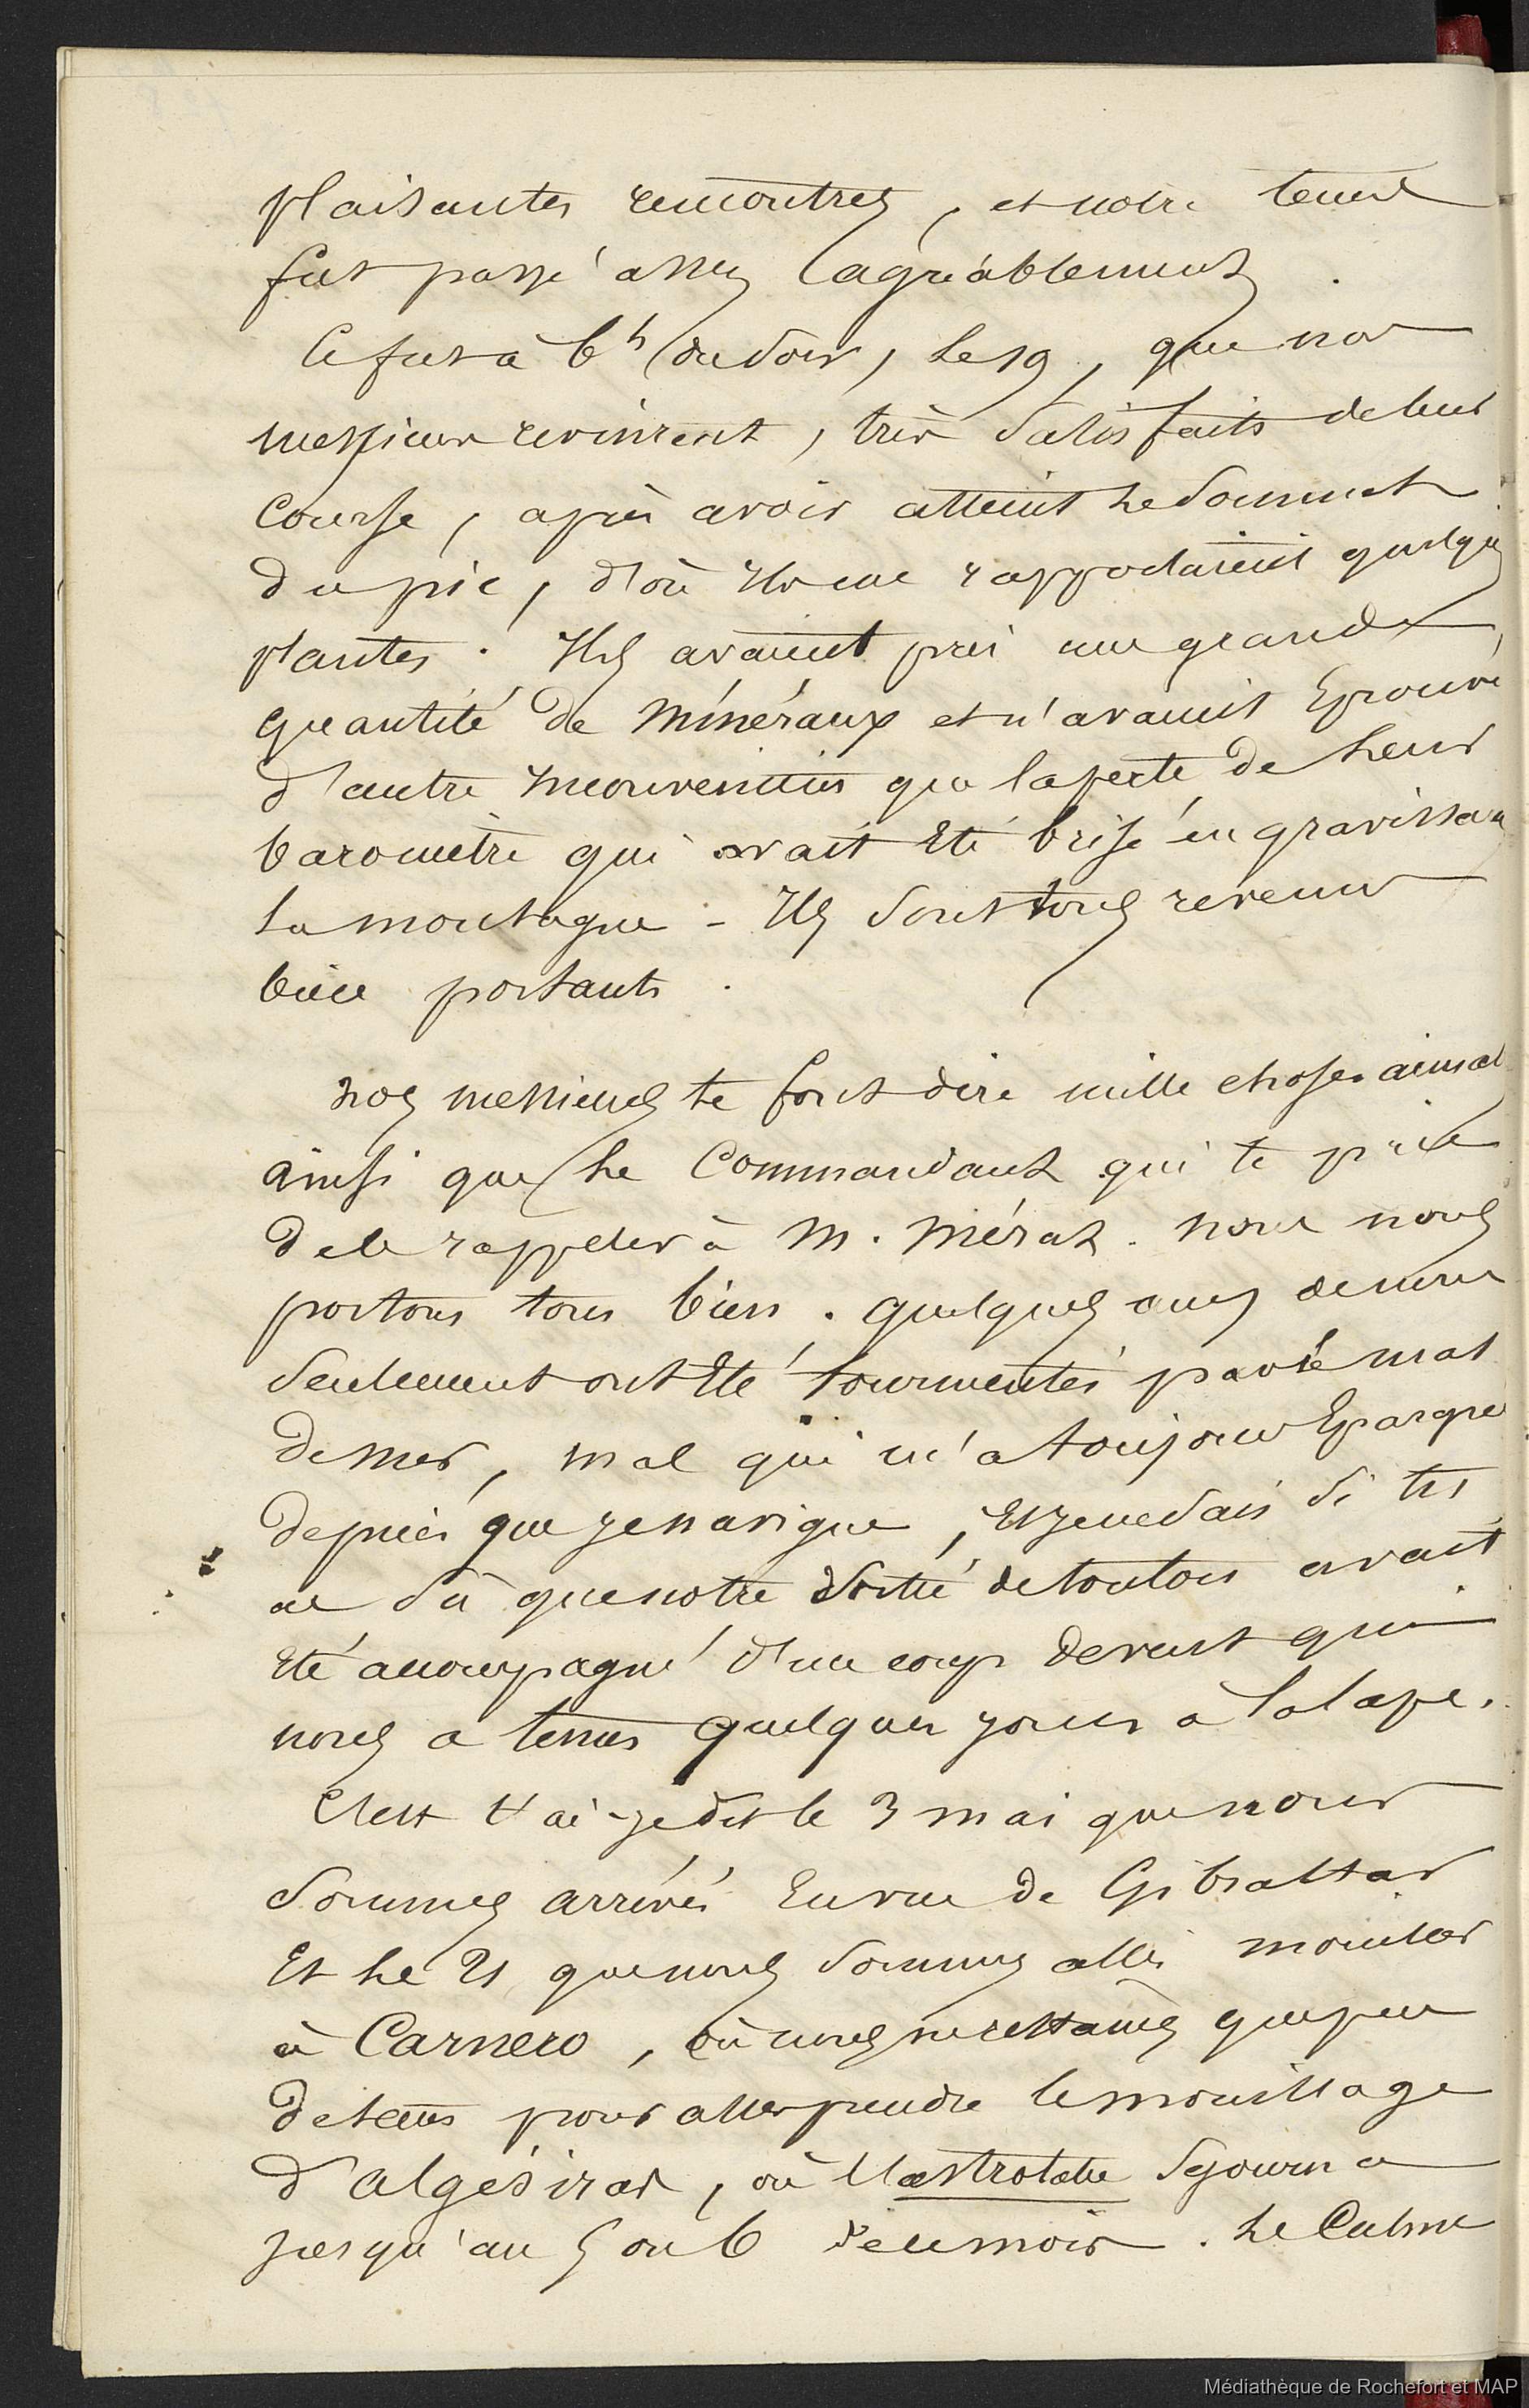 plaisantes rencontres, et notre tems
fut passé assez agréablement.
Ce fut à 6h du soir, le 19, que nos
messieurs revinrent, très satisfaits de leur
course, après avoir atteint le sommet
du pic, d'où ils me rapportaient quelques
plantes. Ils avaient pris une grande
quantité de minéraux et n'avaient éprouvé
d'autre inconvenient que la perte de leur
baromètre qui avait été brisé en gravissant
la montagne - Ils sont tous revenus
bien portants.
nos messieurs te font dire mille choses aimables
ainsi que le Commandant qui te prie
de le rappeler à M. Mérat. nous nous
portons tous bien. quelques uns de nous
seulement ont été tourmentés par le mal
de mer, mal qui m'a toujours épargné
depuis que je navigue, et je ne sais si tu
as su que notre sortie de toulon avait
été accompagné d'un coup de vent qui
nous a tenus quelques jours à la cape.
C'est t'ai-je dit le 3 mai que nous
sommes arrivés en vue de Gibraltar
Et le 21 que nous sommes allés mouiller
à Carnero, où nous ne restâmes que peu
de tems pour aller prendre le mouillage
d'algésiras, où l'astrolabe séjourna
jusqu'au 5 ou 6 de ce mois. Le Calme
Médiathèque de Rochefort et MAP